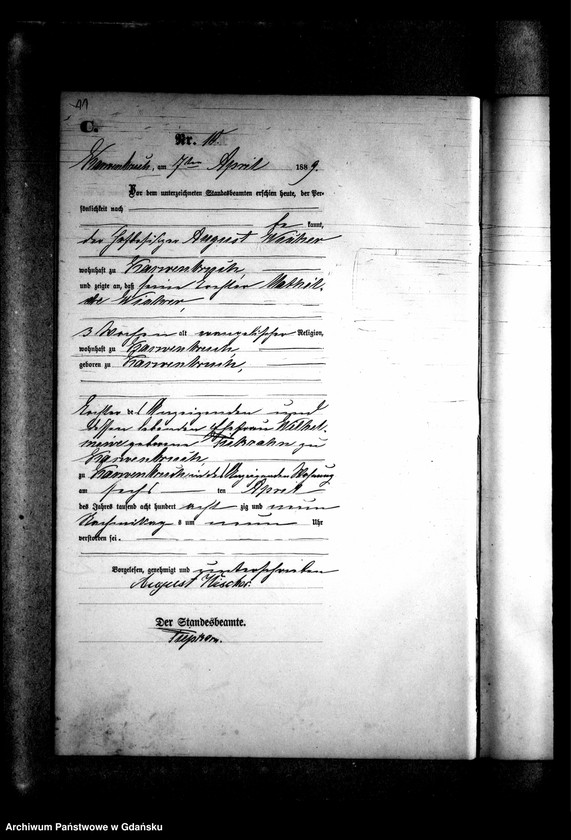 C.
Nr. 10.
Karwenbruch, am 7ten April 1889.
Vor dem unterzeichneten Standesbeamten erschien heute, der Per-
sönlichkeit nach
be kannt,
der Hofbesitzer August
wohnhaft zu Karwenbruch,
und zeigte an, daß seine Tochter Mathil-
de
3 Wochen alt evangelischer Religion,
wohnhaft zu Karwenbruch,
geboren zu Karwenbruch,
Tochter des Anzeigenden und
dessen lebenden Ehefrau Wilhel-
mine geborene zu
Karwenbruch,
zu Karwenbruch in des Anzeigenden Wohnung
am sechs ten April
des Jahres tausend acht hundert acht zig und neun
Nachmittag s um neun Uhr
verstorben sei.
Vorgelesen, genehmigt und unterschrieben
August
Der Standesbeamte.
Archiwum Państwowe w Gdańsku